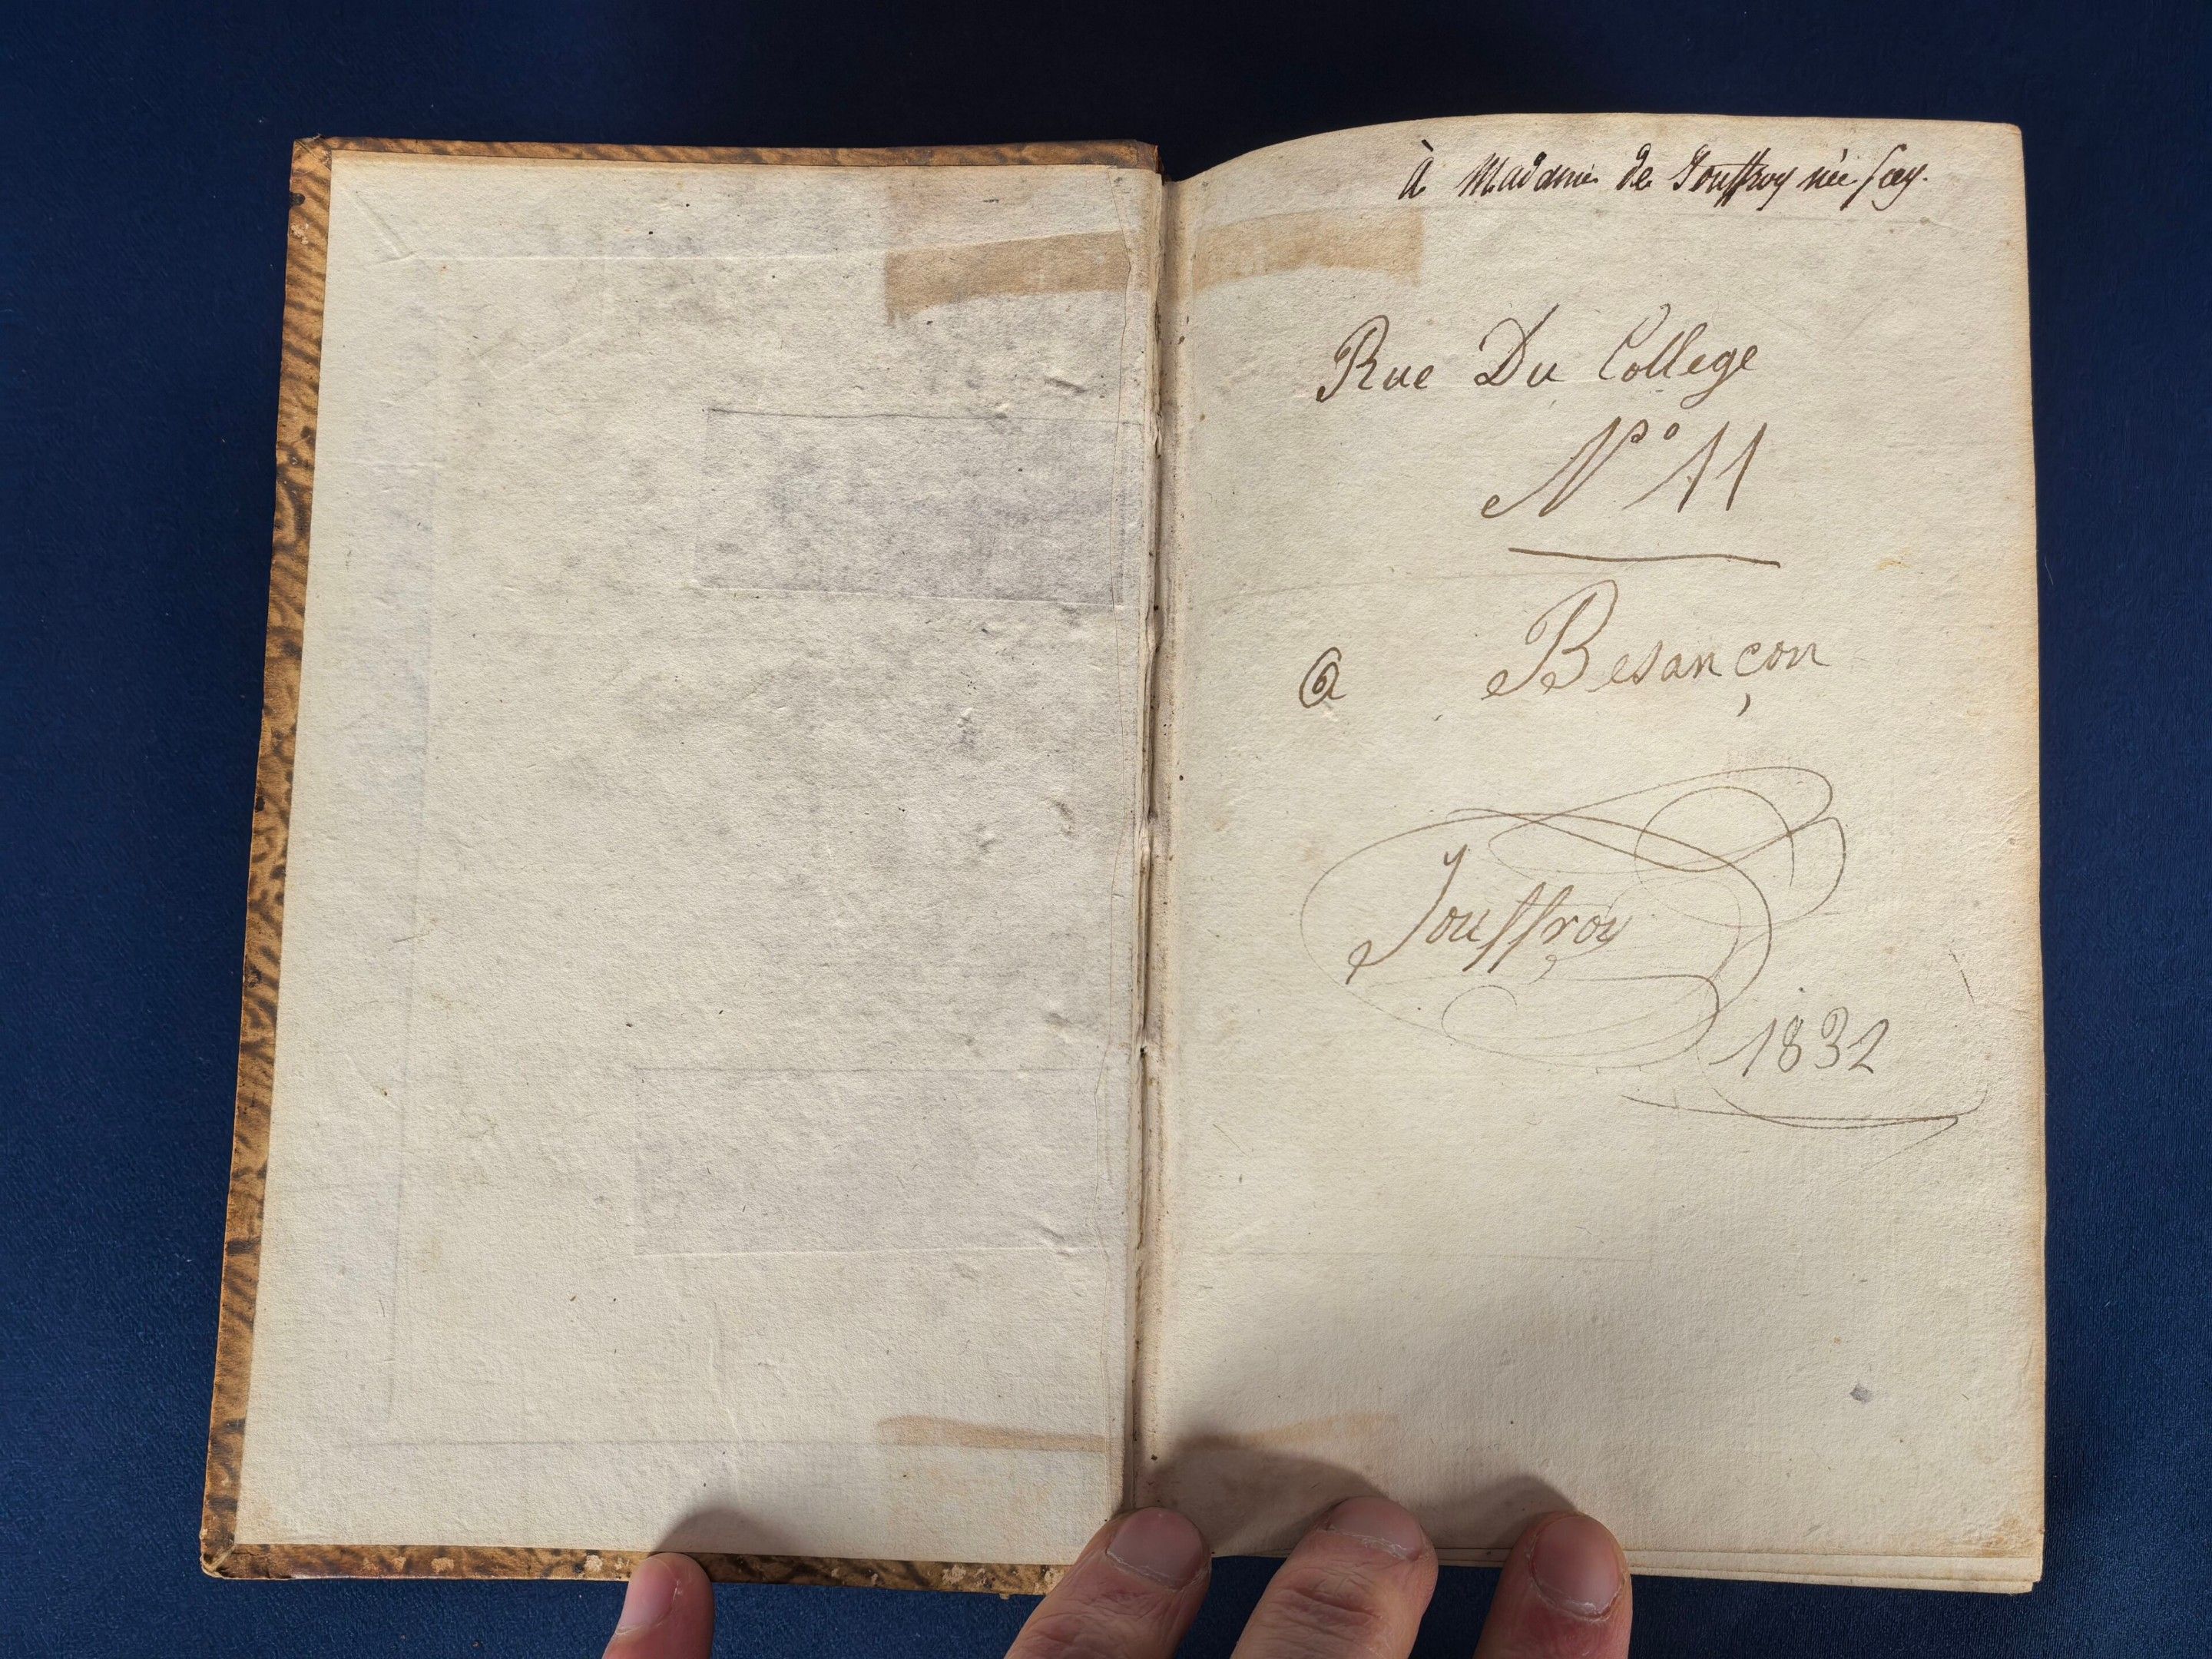 à Madame de Jouffroy née Scey.
Rue Du College
N° 11
a Besançon
Jouffroy
1832